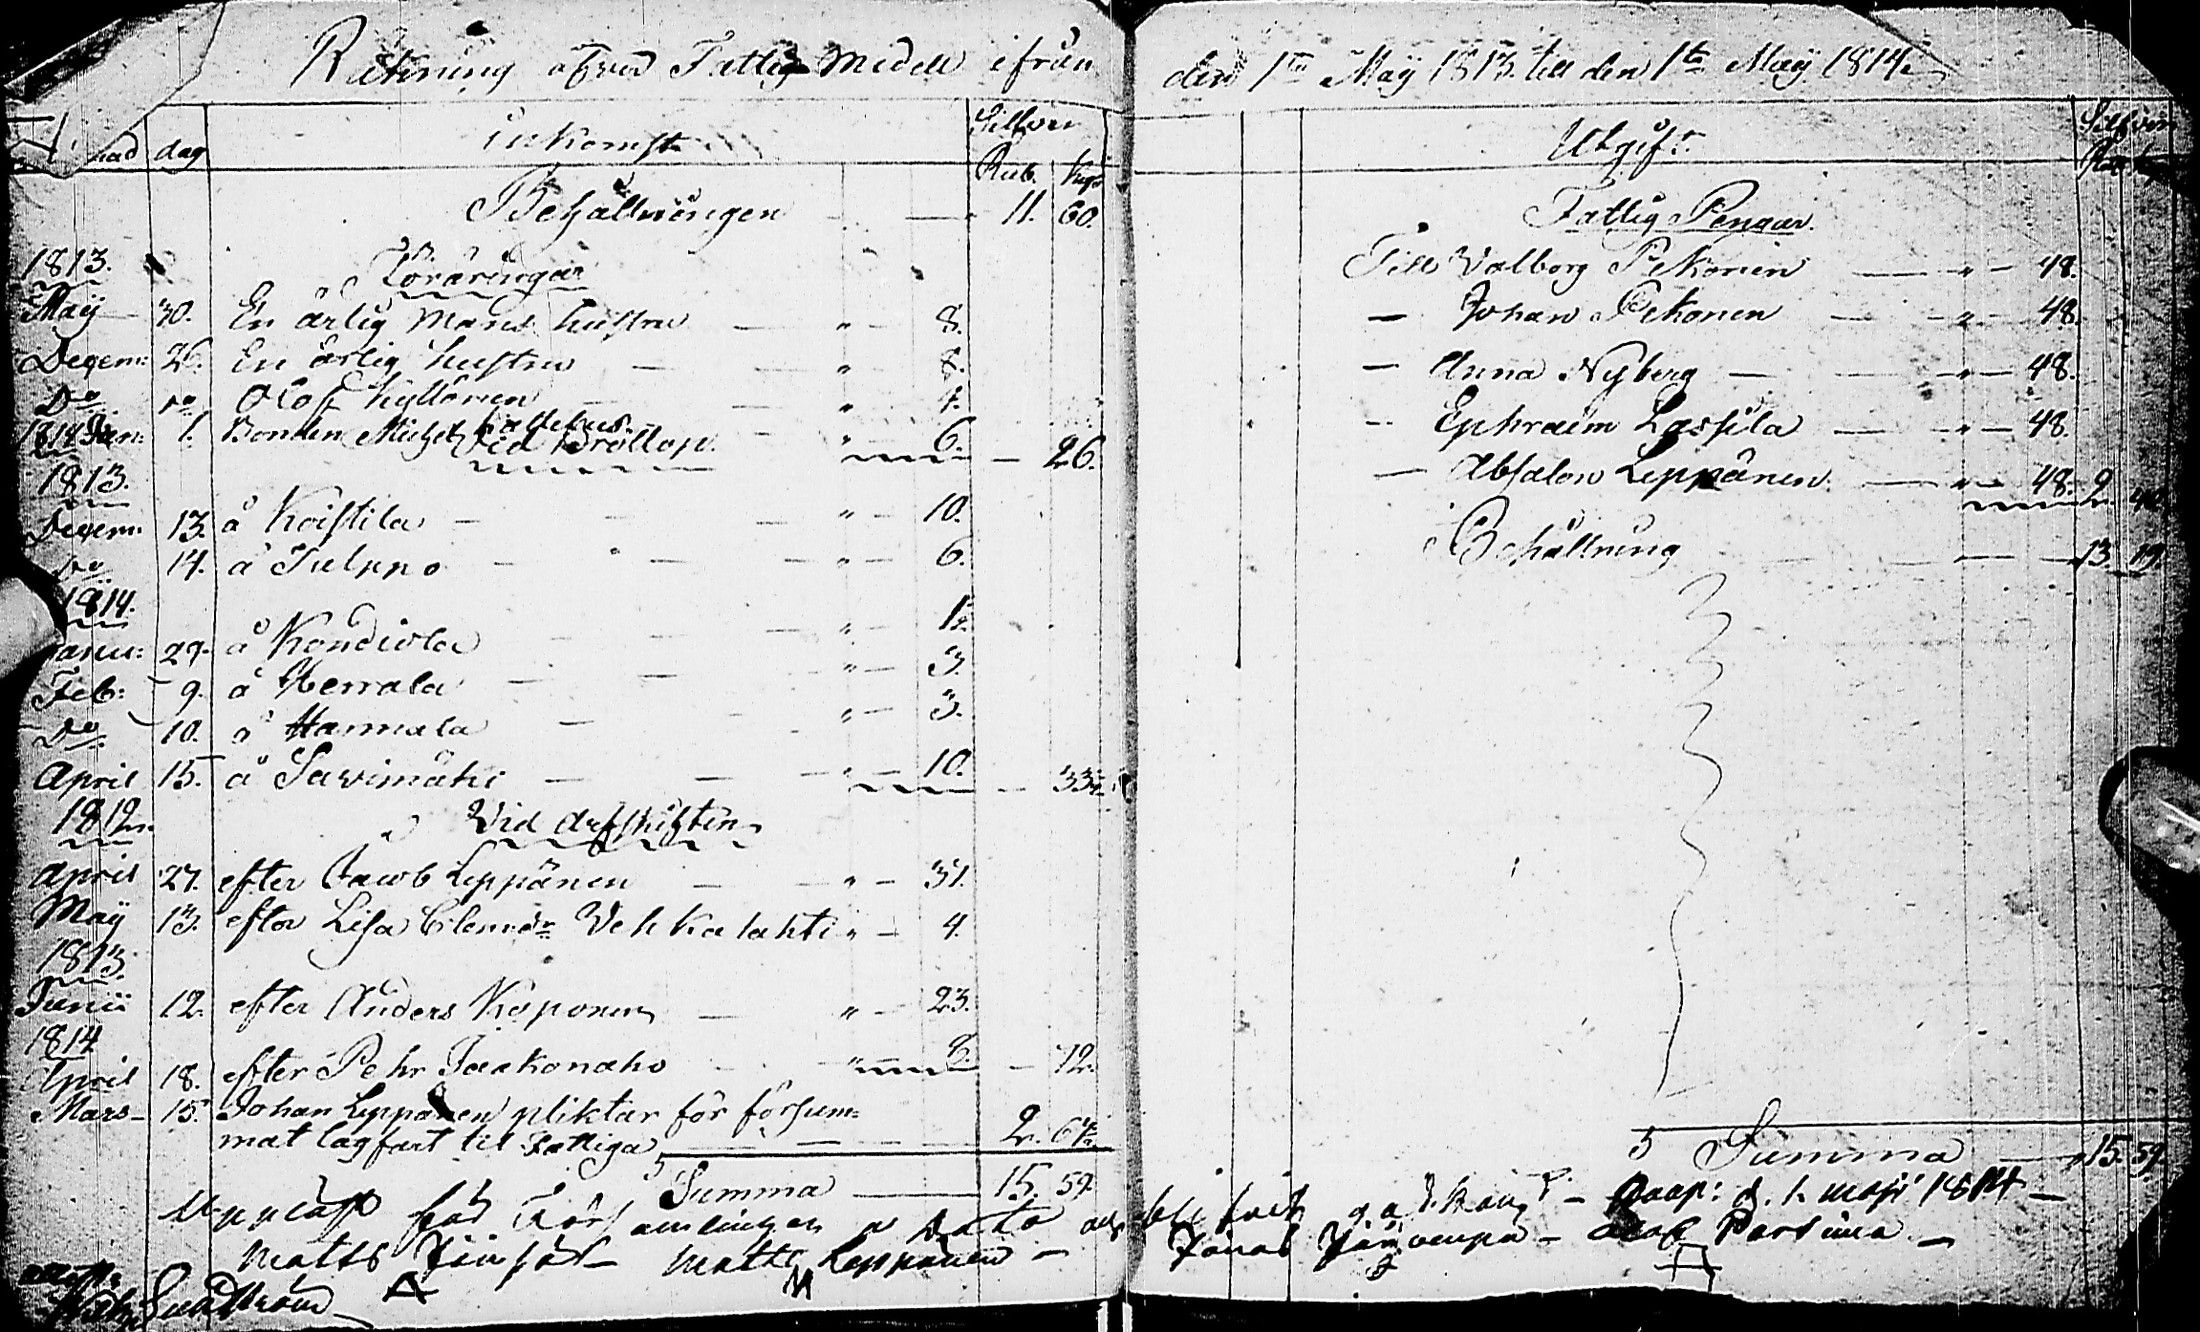 Räkning öfver Fattig Medell ifrån den 1ta Maÿ 1813. till den 1ta Maÿ 1814.
nad dag Inkomst Silfver
Rub. kop
Behållningen — 11. 60.
1813. Föräringar
Maÿ 30. En ärlig Mans hustru — " — 8.
Decem: 26. En ärlig hustru — " — 8.
Do do Olof Kyllönen — " 4.
1814 Jan: 1. Bonden Michel — " 6. — 26.
1813. Vid Bröllop.
Decem: 13. å Koistila — " — 10.
do 14. å Tulppo — " — 6.
1814.
Janu: 29. å Kondiola — " — 1½
Feb: 9. å Herrala — " — 3.
Do 10. å Hannula — " — 3.
April 15. å Savimäki — " — 10. — 33½
1812. Vid Arfskiften
April 27. efter Jacob Leppänen — " — 37.
May 13. efter Lisa Clemdr Vehkalahti " — 4.
1813.
Junii 12. efter Anders Koponen — " — 23.
1814
April 18. efter Pehr Jaakonaho — " 8. — 72.
Mars — 15. Johan Leppänen pliktar för försum=
mat lagfart til Fattiga — 2. 67½
Summa — 15. 59.
Utgift Silfver
Fattig Pengar.
Till Valborg Pekonen — " — 48.
— Johan Pekonen — " — 48.
— Anna Nyberg — " — 48.
— Ephraim Lassila — " — 48.
— Absalon Leppänen — " — 48. 2. 40.
Behållning — 13. 19.
Summa — 15. 59.
Uppläst för Församlingen d. 1. maji 1814 —
Matts Matts Leppänen — Jonas Järvenpä — Olof Partima —